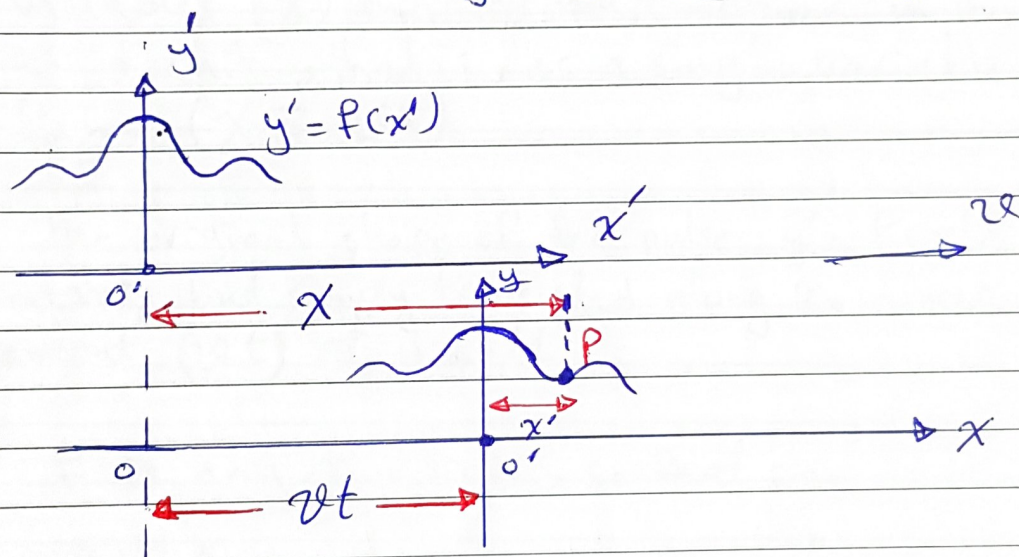 y'
y' = f(x')
x'
v
O'
x
y
P
x'
O
O'
x
vt